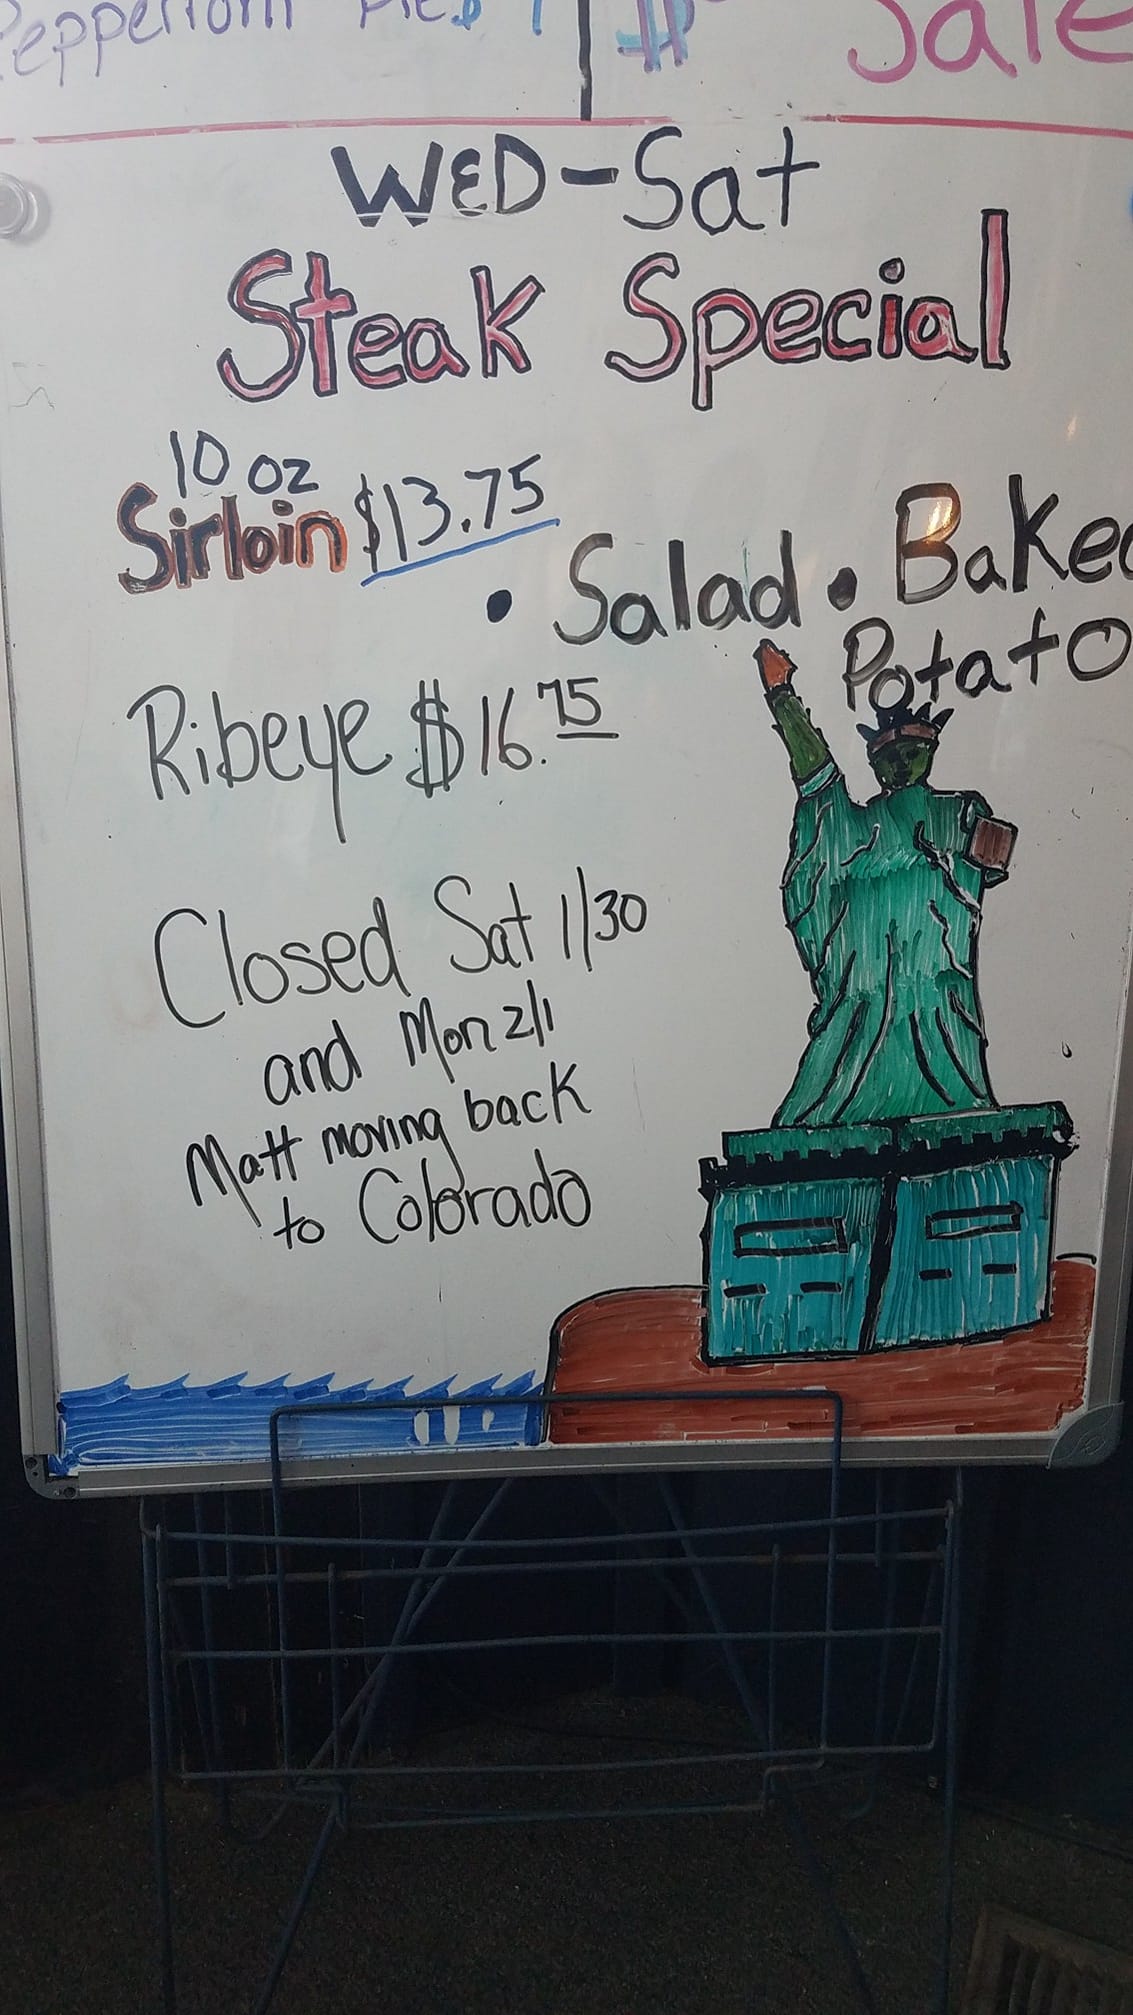 Pepperoni
Sale
WED-Sat
Steak Special
10 oz
Sirloin $13.75
• Salad • Baked
Potato
Ribeye $16.75
Closed Sat 1/30
and Mon 2/1
Matt moving back
to Colorado